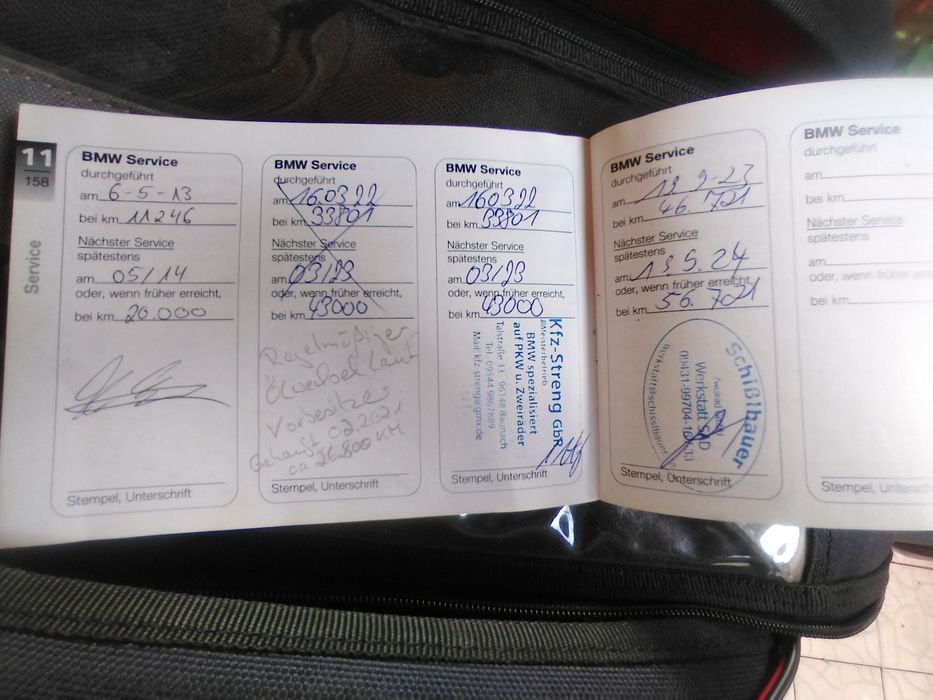 11
158
Service
BMW Service
durchgeführt
am 6-5-13
bei km 11246
Nächster Service
spätestens
am 05/14
oder, wenn früher erreicht,
bei km 20.000
Stempel, Unterschrift
BMW Service
durchgeführt
am 160322
bei km 33801
Nächster Service
spätestens
am 03/23
oder, wenn früher erreicht,
bei km 43000
Regelmäßiger
Ölwechsel laut
Vorbesitzer
Gekauft 02.2021
ca 26.800 KM
Stempel, Unterschrift
BMW Service
durchgeführt
am 160322
bei km 33801
Nächster Service
spätestens
am 03/23
oder, wenn früher erreicht,
bei km 43000
Kfz-Streng GbR
Meisterbetrieb
BMW spezialisiert
auf PKW u. Zweiräder
Talstraße 33 · 96148 Baunach
Tel. 09544 9867889
Mail: kfz-streng@gmx.de
Stempel, Unterschrift
BMW Service
durchgeführt
am
bei km 46.701
Nächster Service
spätestens
am 13.9.24
oder, wenn früher erreicht,
bei km 56.701
Schißlbauer
Werkstatt SAD
Stempel, Unterschrift
BMW Service
durchgeführt
am
bei km
Nächster Service
spätestens
am
oder, wenn früher erreicht,
bei km
Stempel, Unterschrift